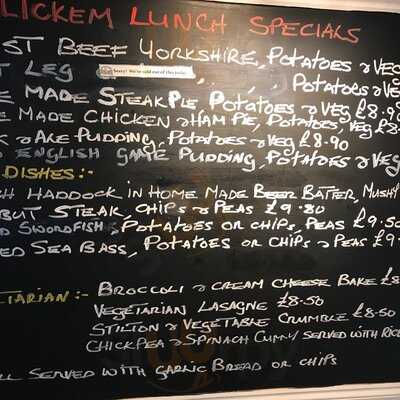 LICKEM LUNCH SPECIALS
ST BEEF YORKSHIRE, POTATOES & VEG
T LEG , , POTATOES & VEG
Sorry! We've sold out of this today
E MADE STEAK PIE, POTATOES & VEG £8.9
E MADE CHICKEN & HAM PIE, POTATOES, VEG £8
K & ALE PUDDING, POTATOES & VEG £8.90
D ENGLISH GAME PUDDING, POTATOES & VEG
DISHES:-
SH HADDOCK IN HOME MADE BEER BATTER, MUSHY
BUT STEAK, CHIPS & PEAS £9.80
D SWORDFISH, POTATOES OR CHIPS, PEAS £9.50
ED SEA BASS, POTATOES OR CHIPS & PEAS £9
TARIAN:- BROCCOLI & CREAM CHEESE BAKE £8
VEGETARIAN LASAGNE £8.50
STILTON & VEGETABLE CRUMBLE £8.50
CHICKPEA & SPINACH CURRY SERVED WITH RICE
ALL SERVED WITH GARLIC BREAD OR CHIPS